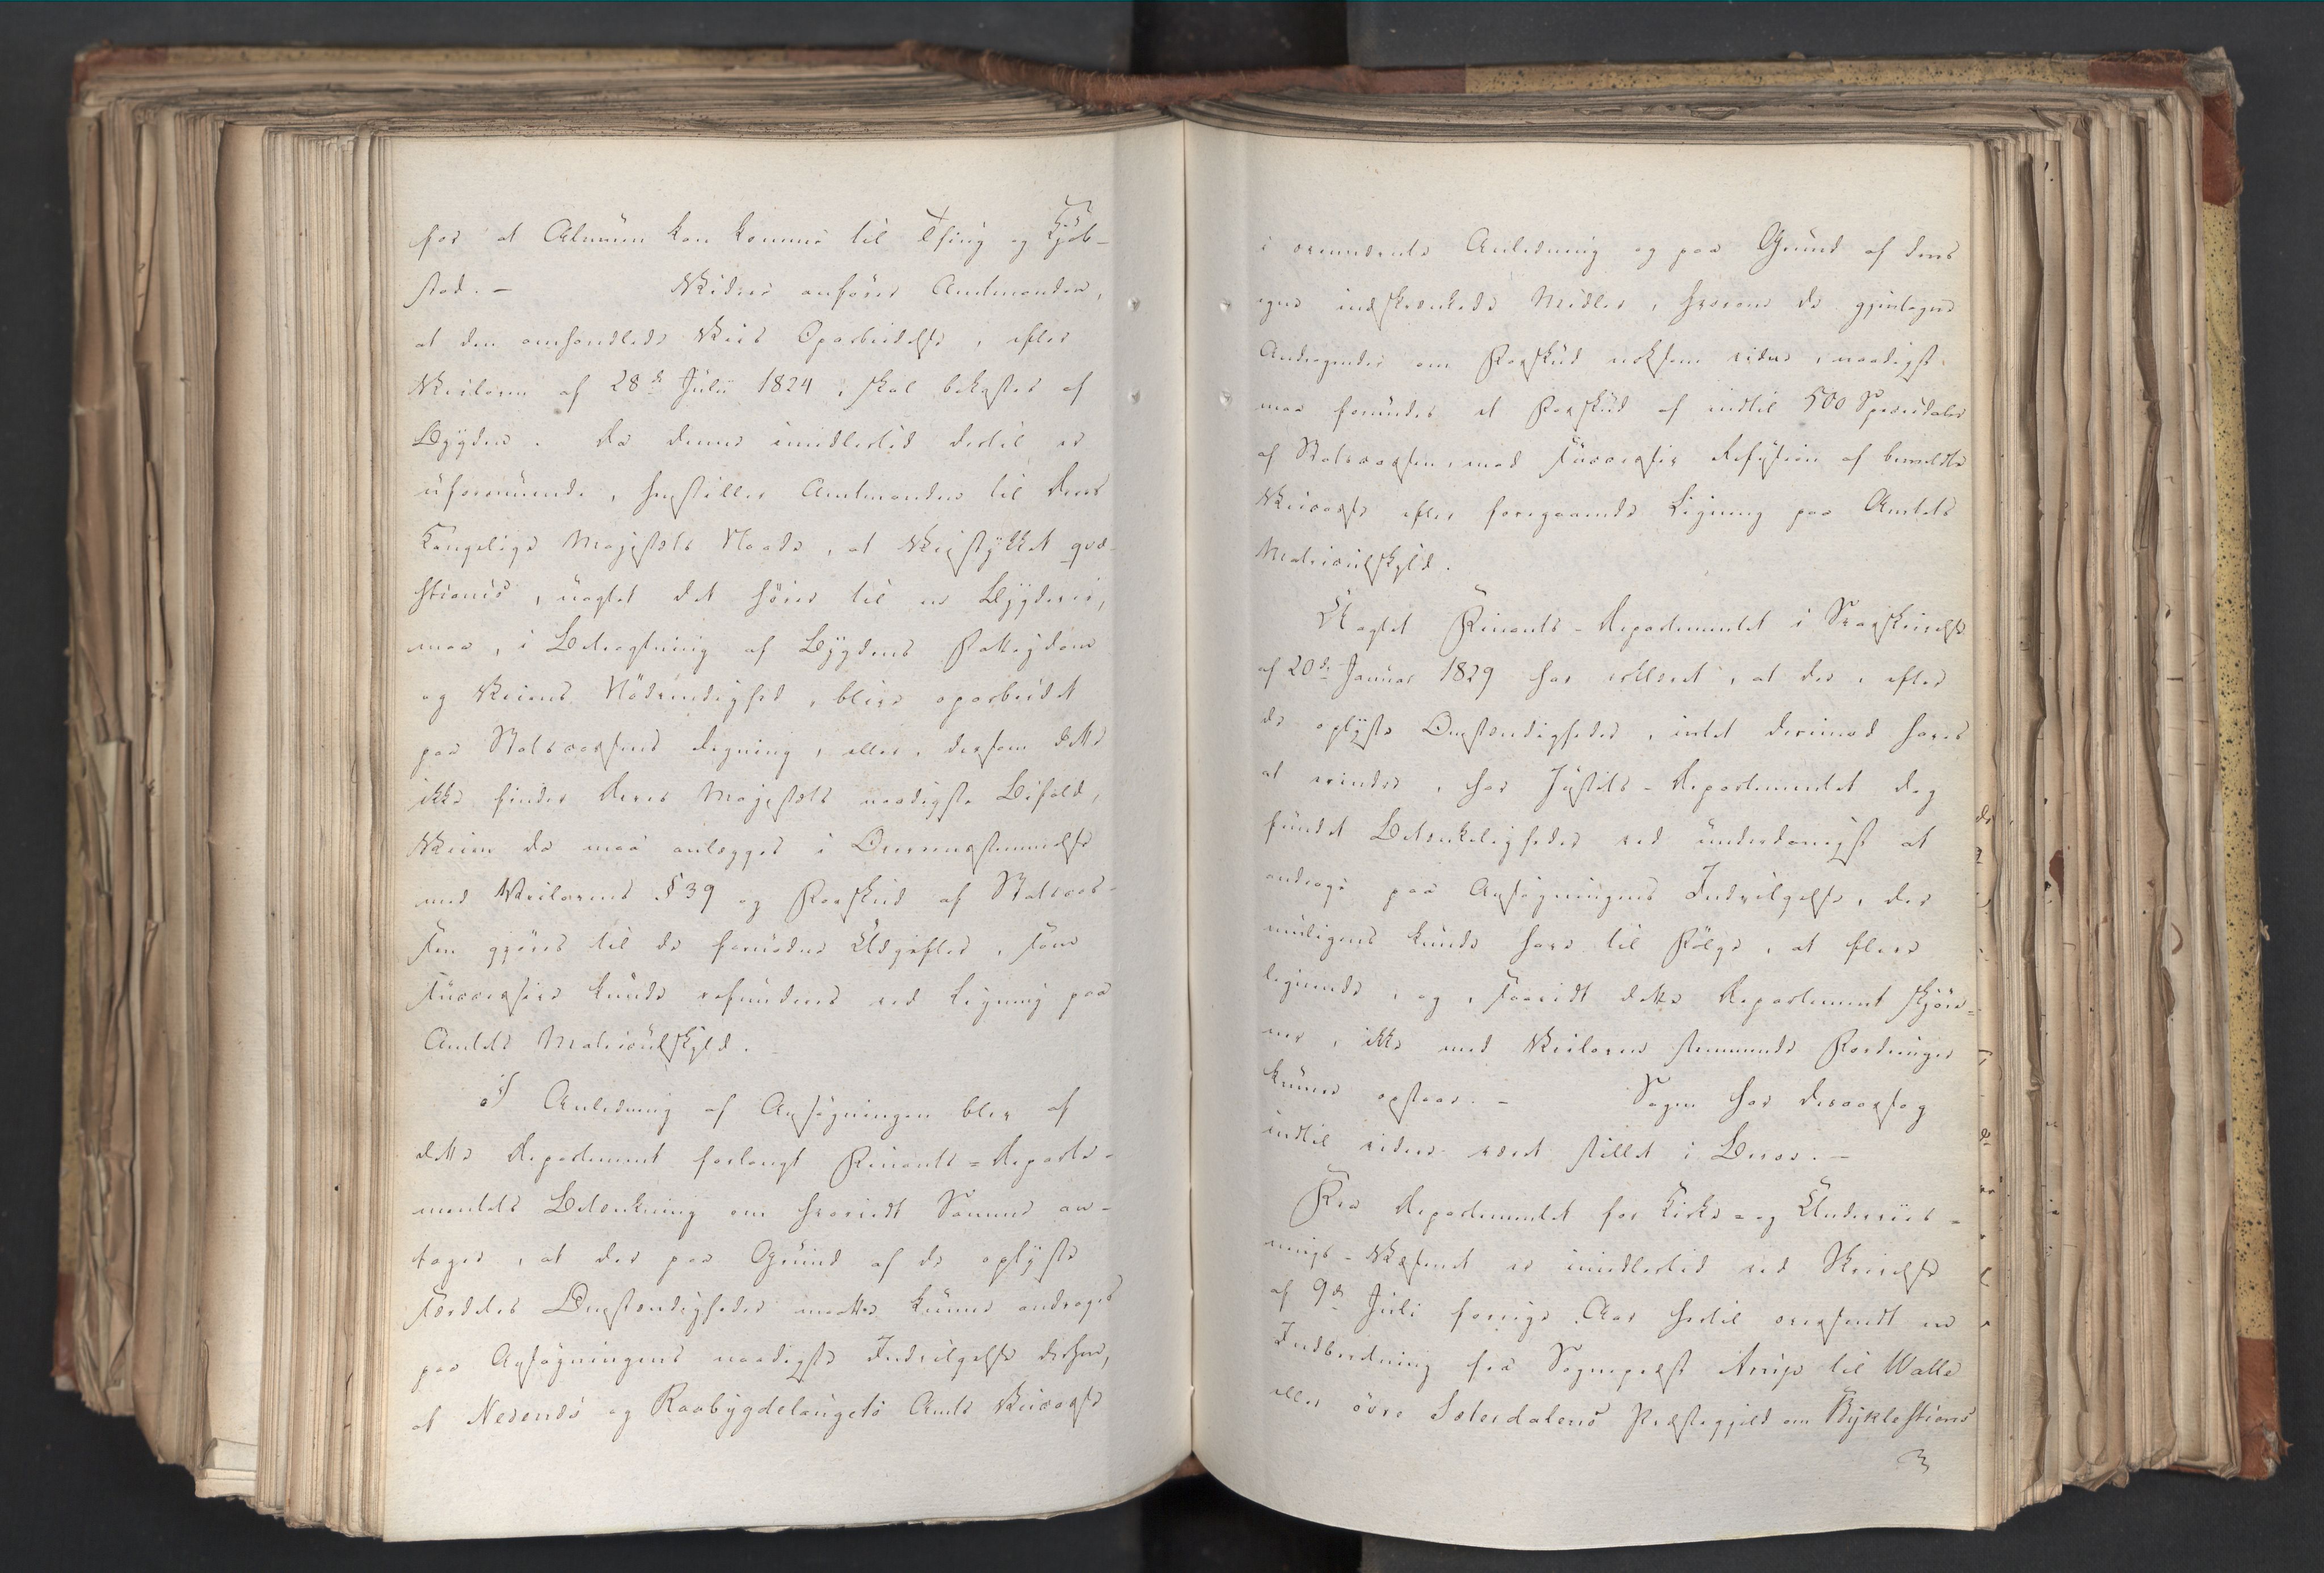 for at Almuen kan komme til Thing og Kjöb-
stad. — Videre anförer Amtmanden,
at den omhandlede Veis Oparbeidelse, efter
Veiloven af 28de Julii 1824, skal bekostes af
Bygden. Da denne imidlertid dertil er
uformuende, henstiller Amtmanden til Deres
Kongelige Majestæts Naade, at Veistykket qvæ-
stionis, uagtet det hörer til en Bygdevei,
maa, i Betragtning af Bygdens Fattigdom
og Veiens Nödvendighed, blive oparbeidet
paa Statscassens Regning, eller, dersom dette
ikke finder Deres Majestæts naadigste Bifald,
Veien da maa anlægges i Overeensstemmelse
med Veilovens § 39 og Forskud af Statscas-
sen gjöres til de fornödne Udgifter, som
successive kunde refunderes ved Ligning paa
Amtets Matriculskyld.
I Anledning af Ansögningen blev af
dette Departement forlangt Finants-Departe-
mentets Betænkning om hvorvidt Samme an-
tager, at der paa Grund af de oplyste
særdeles Omstændigheder maatte kunne andrages
paa Ansögningens naadigste Indvilgelse derhen,
at Nedenæs og Raabygdelaugets Amts Veicasse
i ommeldte Anledning og paa Grund af dens
egne indskrænkede Midler, hvorom de gjentagne
Andragender om Forskud noksom vidne, naadigst
maa forundes et Forskud af indtil 500 Speciedaler
af Statscassen, mod successiv Refusion af bemeldte
Veicasse efter foregaaende Ligning paa Amtets
Matriculskyld.
Uagtet Finants-Departementet i Svarskrivelse
af 20de Januar 1829 har erklæret, at der, efter
de oplyste Omstændigheder, intet derimod haves
at erindre, har Justits-Departementet dog
fundet Betænkeligheder ved underdanigst at
andrage paa Ansögningens Indvilgelse, der
muligens kunde have til Fölge, at flere
lignende, og, saavidt dette Departement skjön-
ner, ikke med Veiloven stemmende Fordringer
kunne opstaae. — Sagen har desaarsag
indtil videre været stillet i Beroe. —
Fra Departementet for Kirke- og Underviis-
nings-Væsenet er imidlertid ved Skrivelse
af 9de Juli forrige Aar hertil oversendt en
Indberetning fra Sognepræst Arup til Walle
eller övre Sæterdalens Præstegjeld om Byklestiens